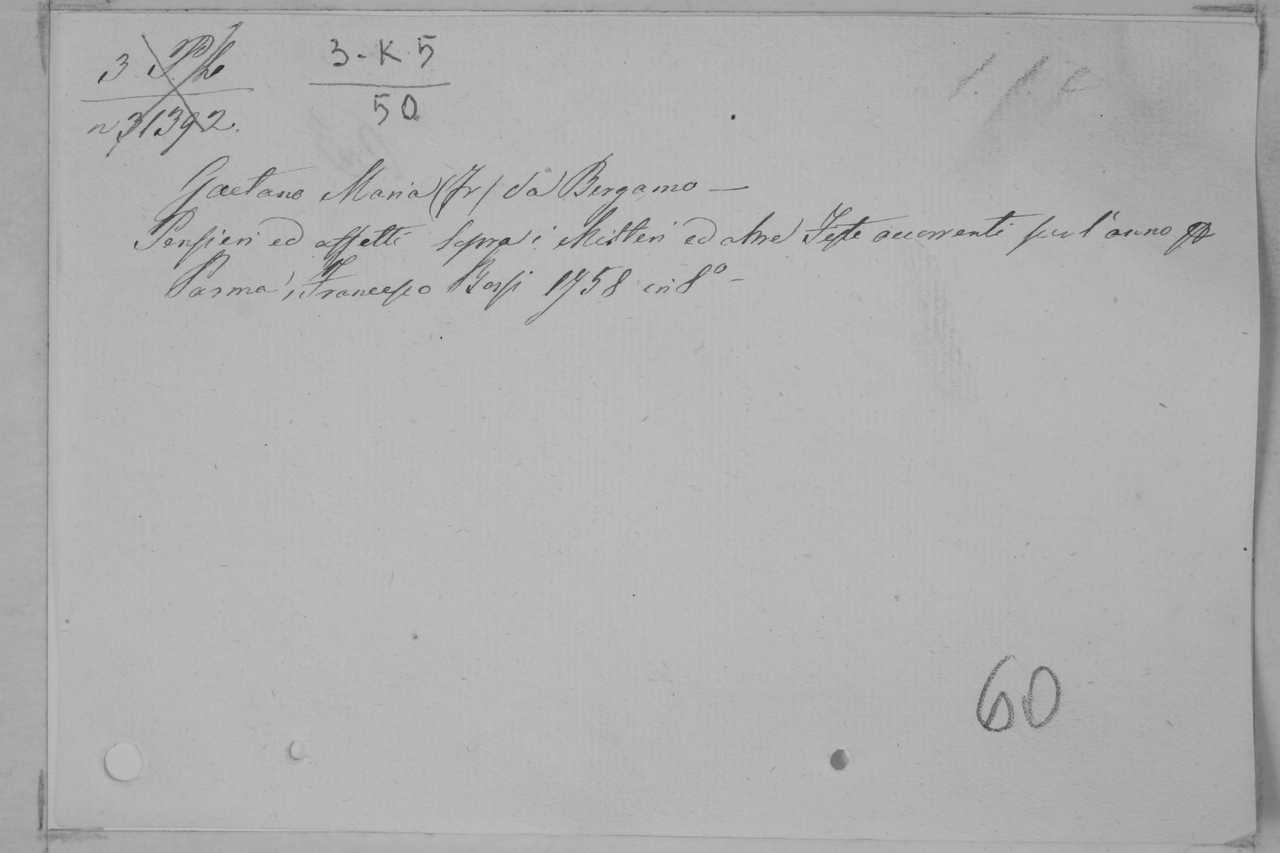 3
n 31392.
3-K 5
50
Gaetano Maria (Fr) da Bergamo —
Pensieri ed affetti sopra i Misteri ed altre Feste occorrenti per l'anno
Parma, Francesco Borsi 1758 in 8º -
60